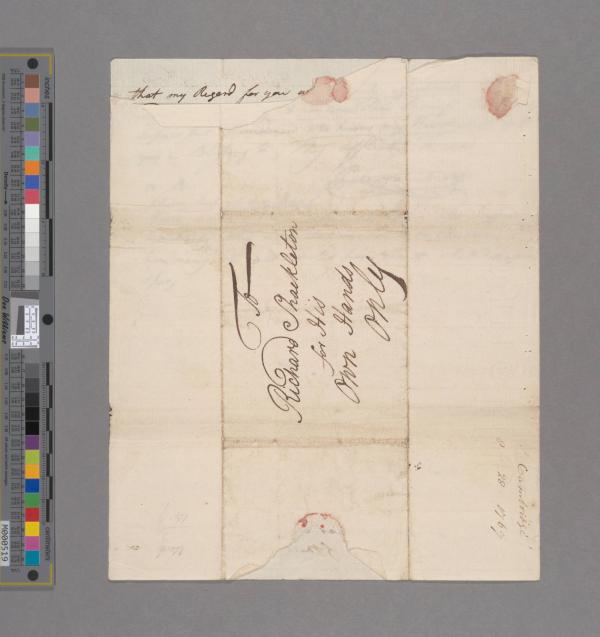 that my Regard for you
To
Richard Shackleton
for His
Own Hands
only
Cambridge
28
inches
centimeters
M000519